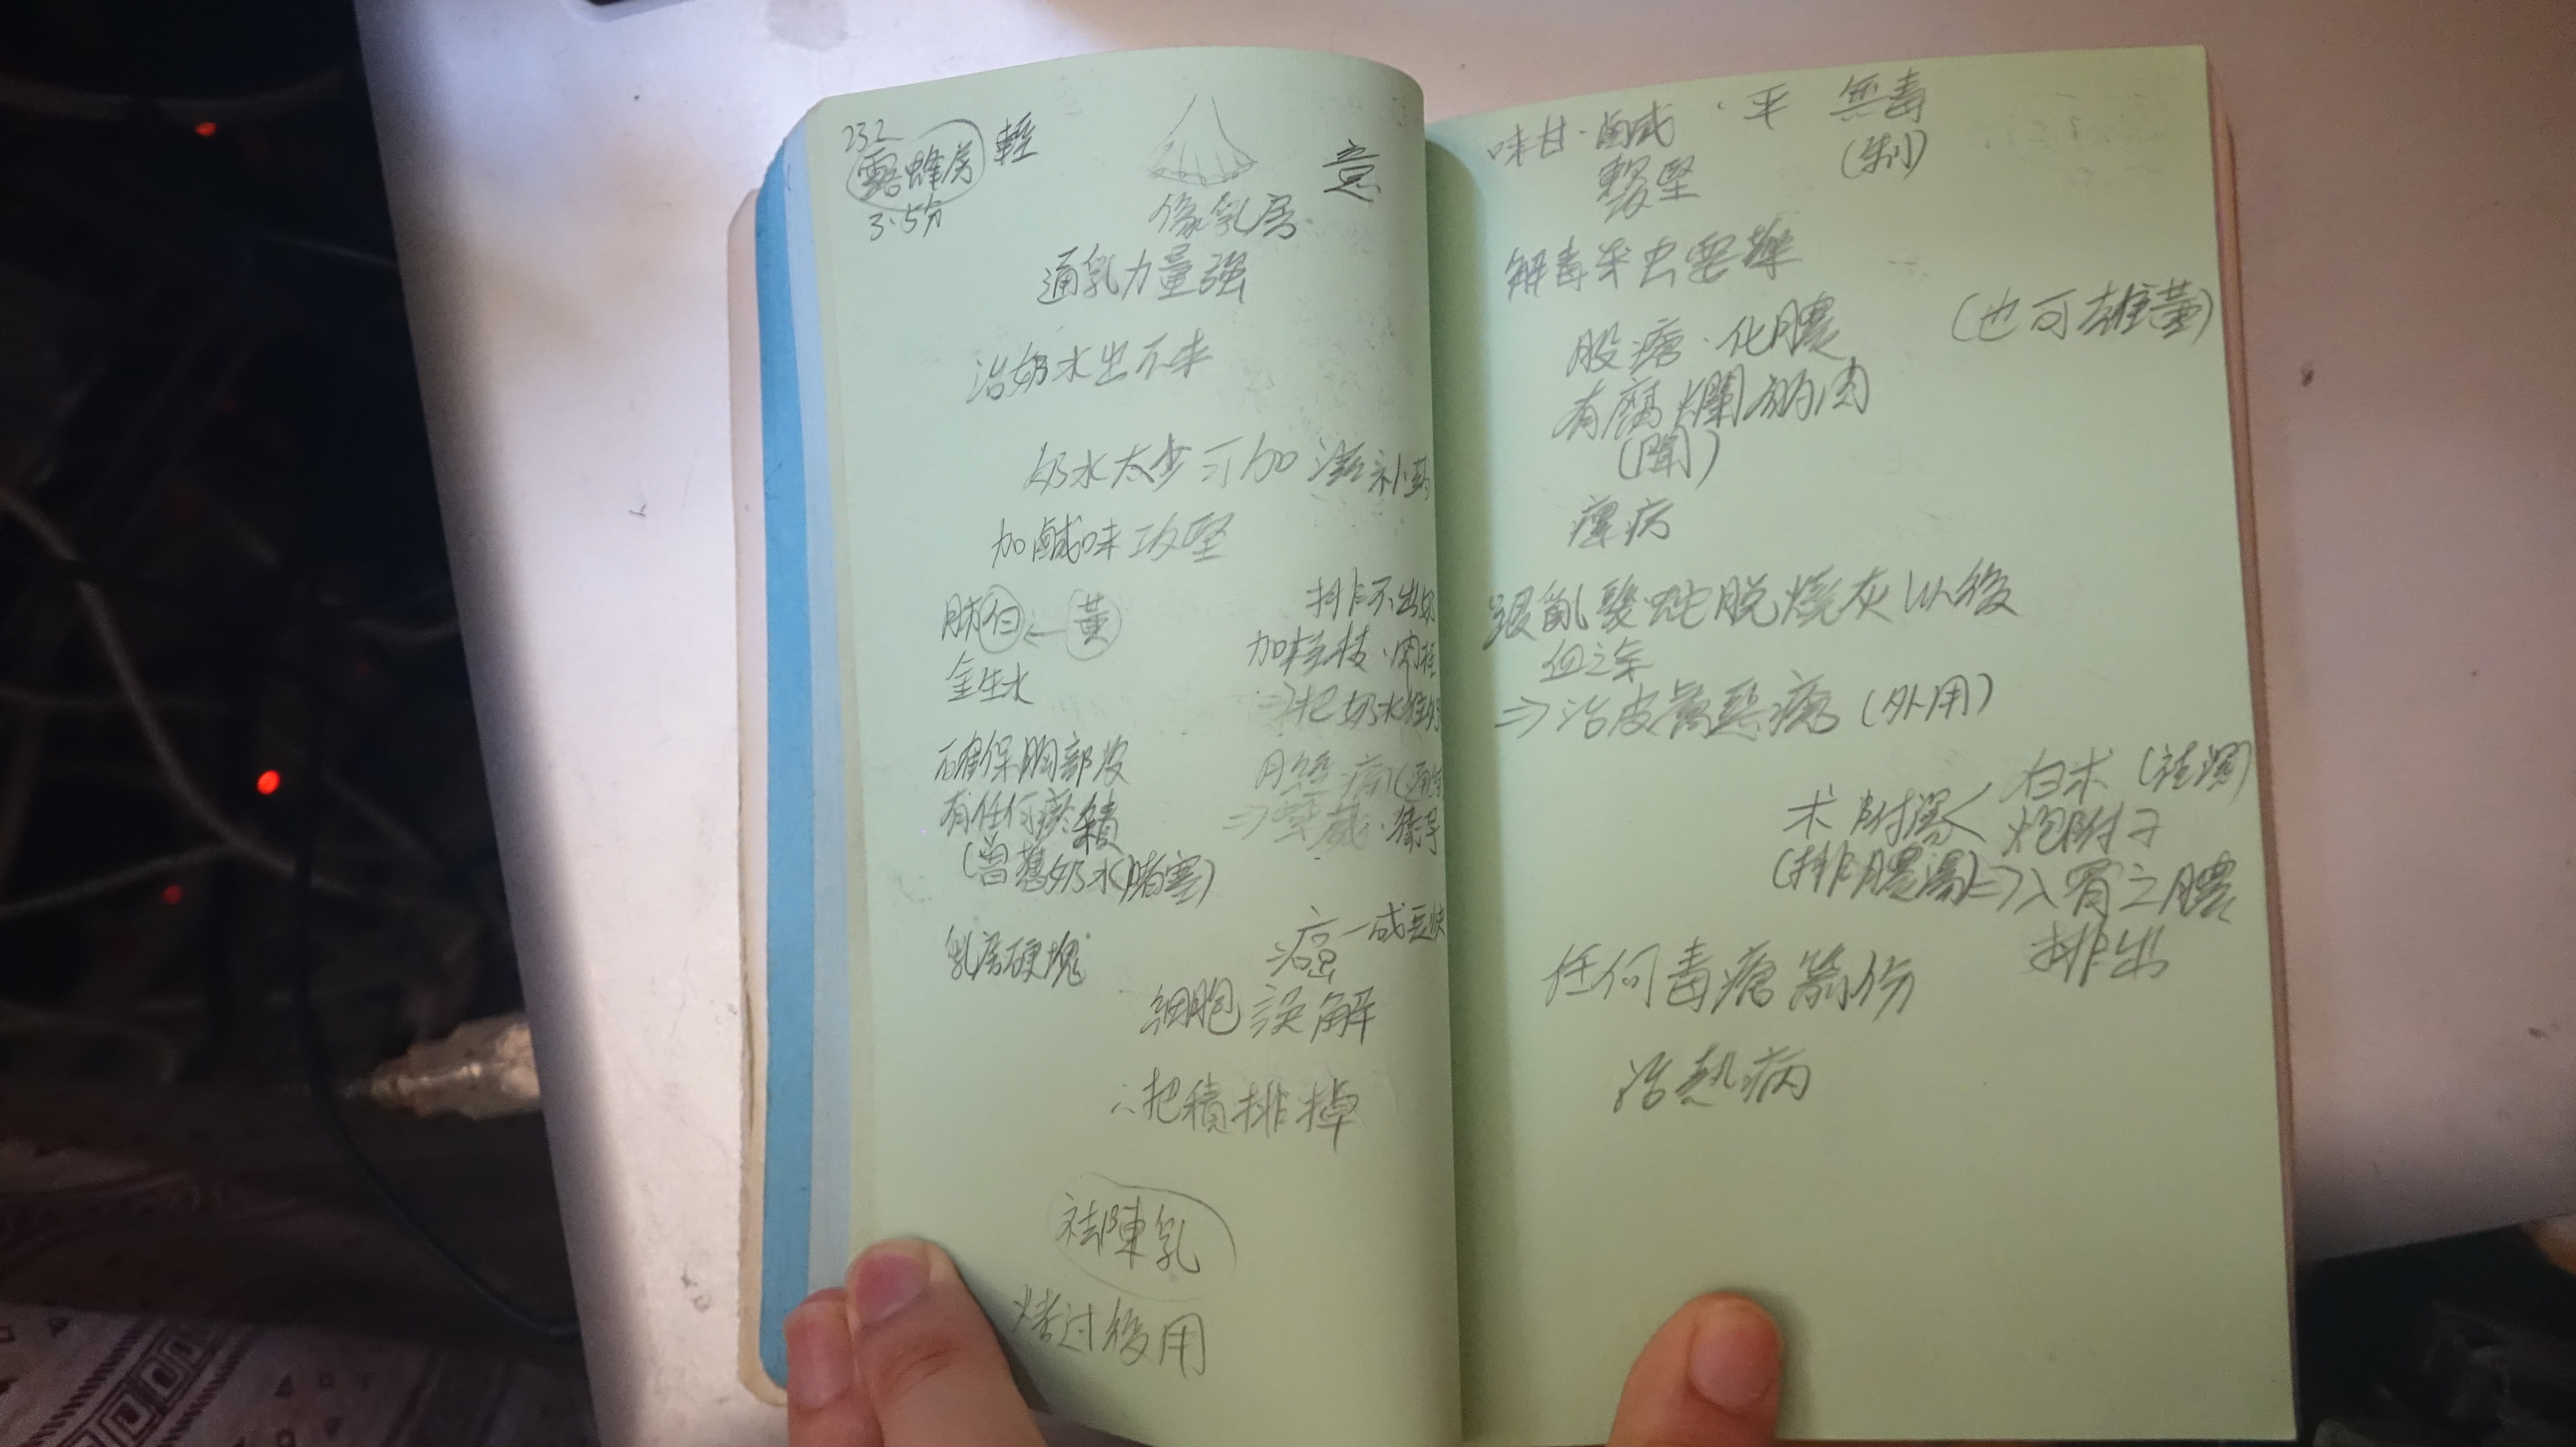 232
露蜂房 輕
意
3.5分
像乳房
通乳力量強
治奶水出不來
奶水太少可加滋補藥
加鹹味攻堅
肺白←黃
金生水
排不出奶
加桂枝·肉桂
⇒把奶水推
確保胸部沒
有任何瘀積
(曾舊奶水堵塞)
月經痛
⇒紫葳·
乳房硬塊
癌
細胞誤解
∴把積排掉
祛陳乳
烤过後用
味甘·鹹·平 無毒
(制)
堅
解毒杀虫要藥
股瘡·化膿 (也可雄黃)
有腐爛的肉
(聞)
病
跟亂髮蛇脫燒灰以後
血之余
⇒治皮膚惡瘡(外用)
术附湯< 白术(祛濕)
炮附子
(排膿湯)⇒入胃之膿
排出
任何毒瘡箭伤
治熱病